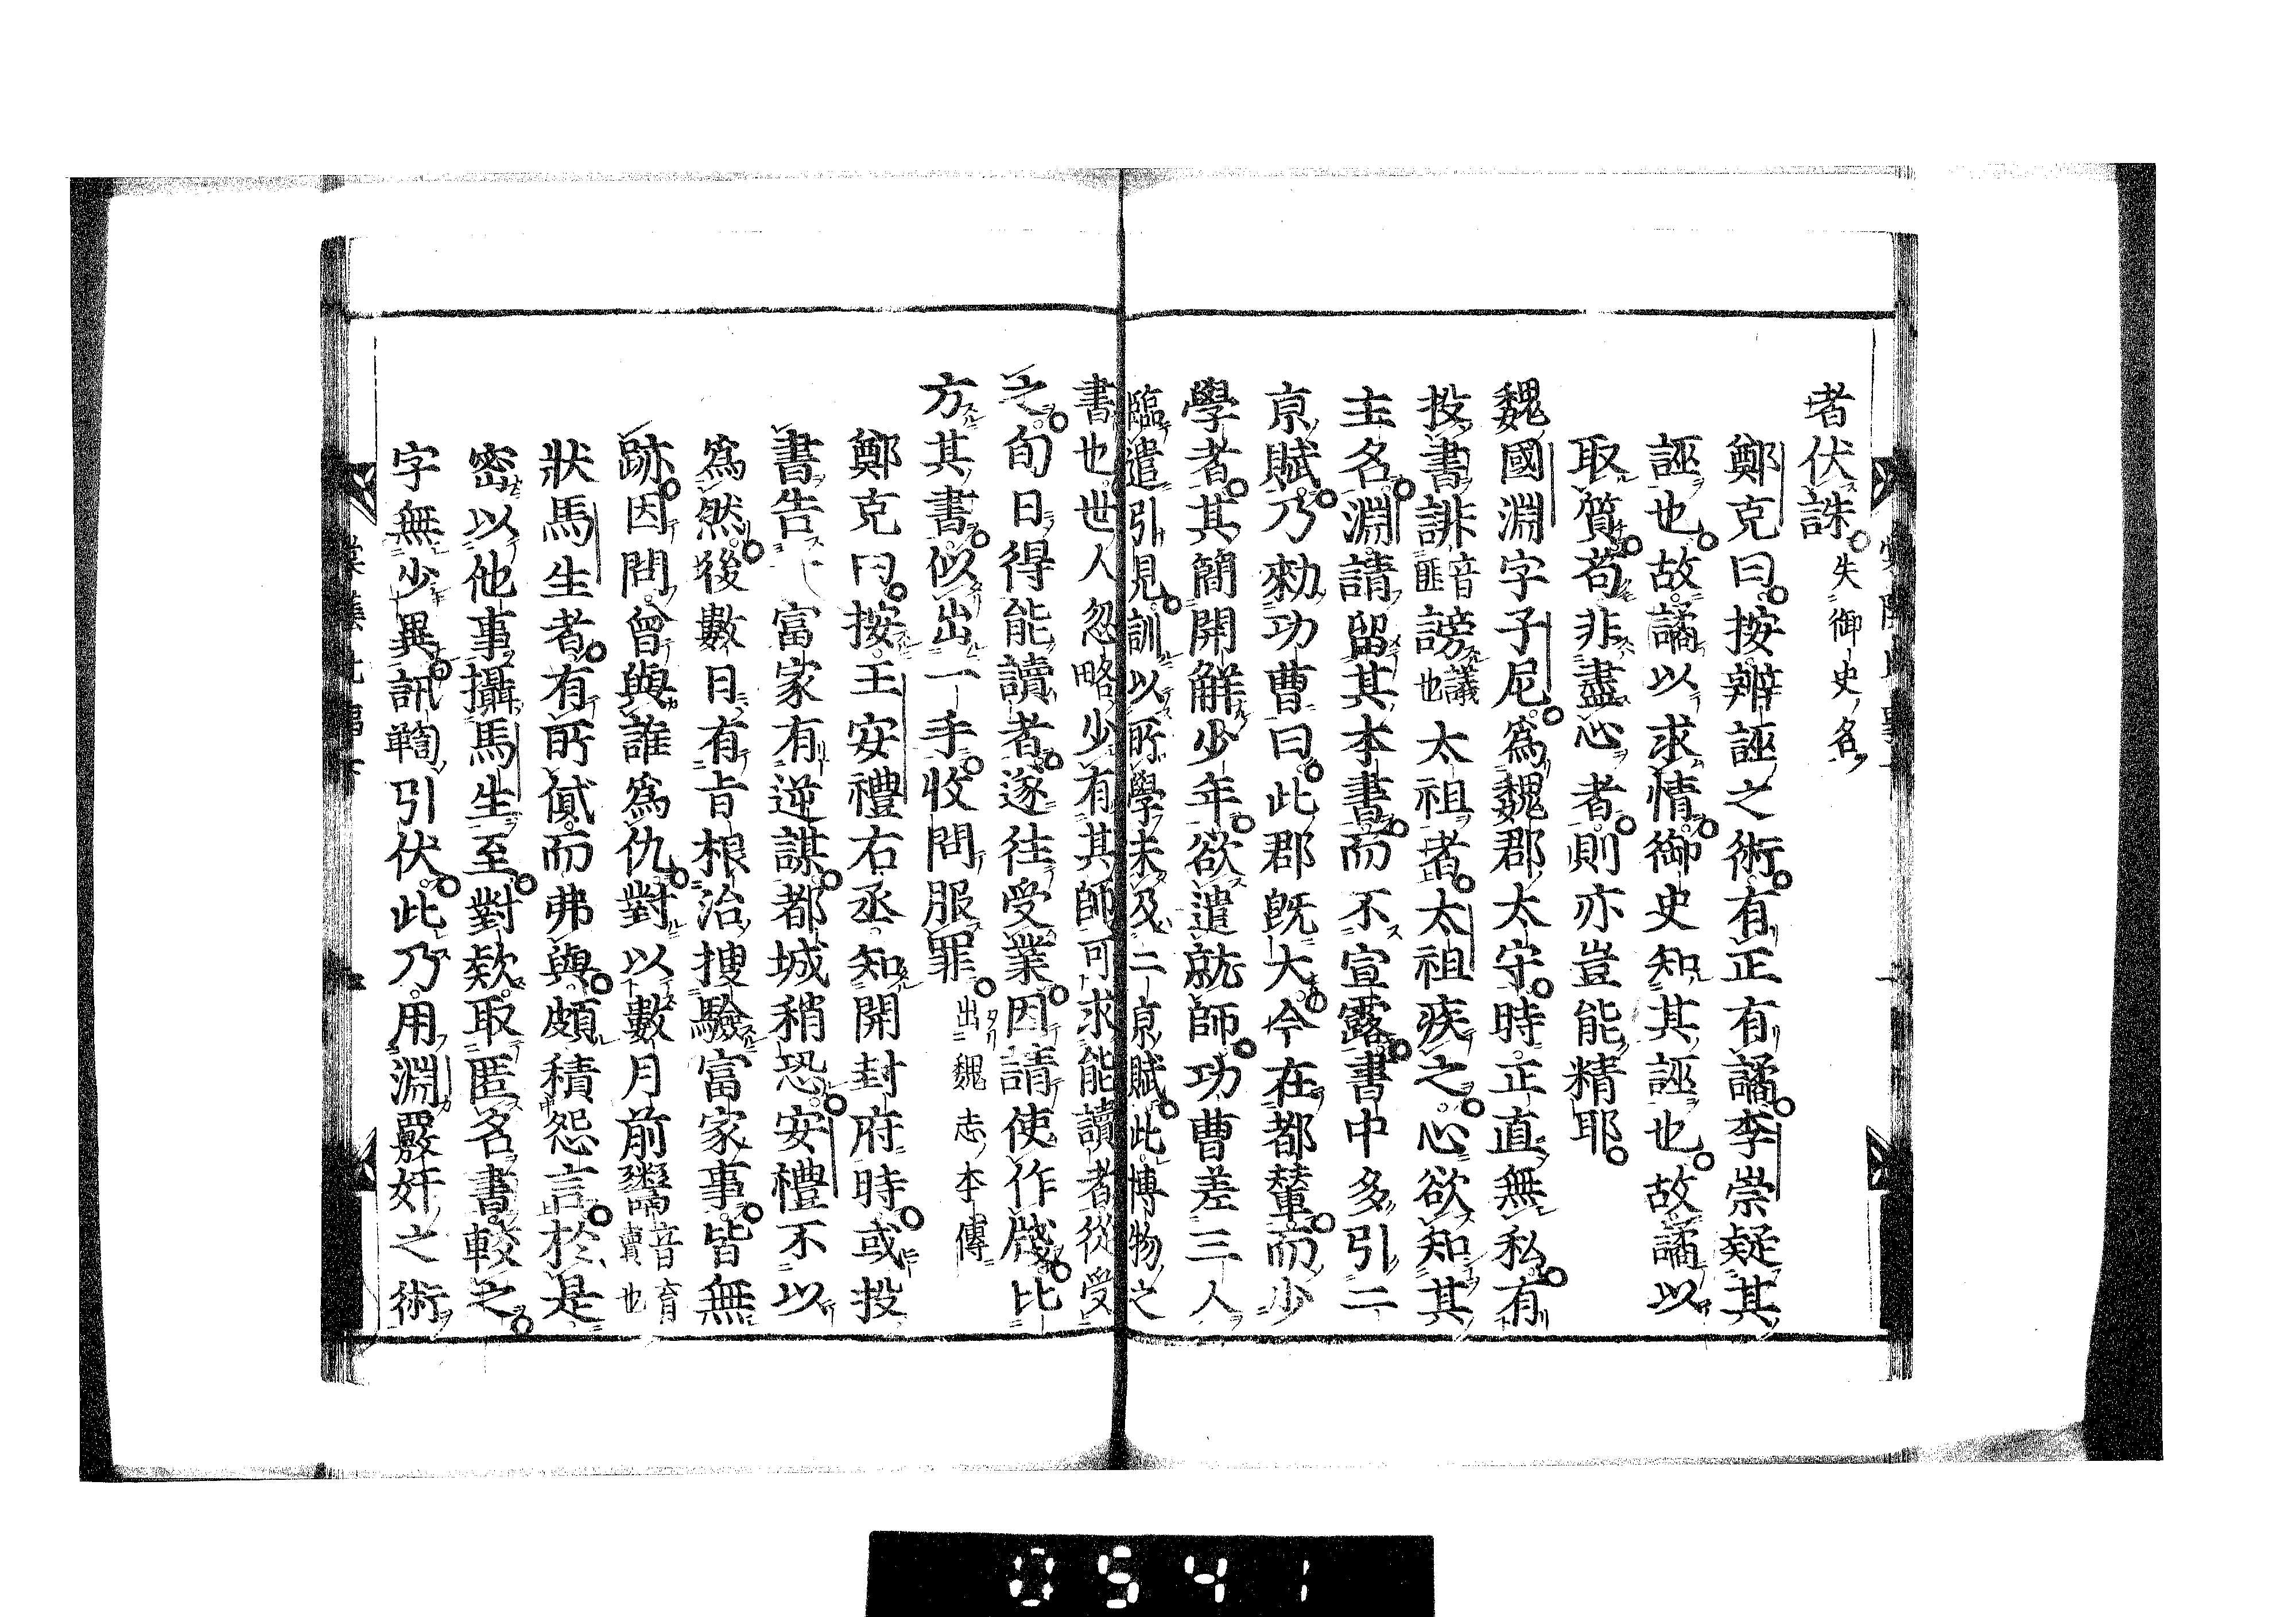 者伏誅失御史名
鄭克曰按辨誣之術有正有譎李崇疑其
誣也故譎以求情御史知其誣也故譎以
取質苟非盡心者則亦豈能精耶
魏國淵字子尼爲魏郡太守時正直無私有
投書誹音匪謗議也太祖者太祖疾之心欲知其
主名淵請留其本書而不宣露書中多引二
京賦乃勑功曹曰此郡既大今在都輦而少
學者其簡開解少年欲遣就師功曹差三人
臨遣引見訓以所學未及二京賦此博物之
書也世人忽略少有其師可求能讀者從受
之旬日得能讀者遂往受業因請使作牋比
方其書似出一手收問服罪出魏志本傳
鄭克曰按王安禮右丞知開封府時或投
書告富家有逆謀都城稍恐安禮不以
爲然後數日有旨根治搜驗富家事皆無
跡因問曾與誰爲仇對以數月前鬻音育賣也
狀馬生者有所貸而弗與頗積怨言於是
密以他事攝馬生至對款取匿名書較之
字無少異訊鞫引伏此乃用淵覈奸之術
0541